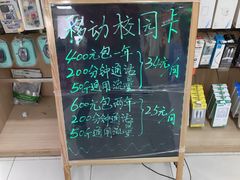 移动校园卡
400元包一年
200分钟通话
50G通用流量
34元/月
600元包两年
200分钟通话
50G通用流量
25元/月